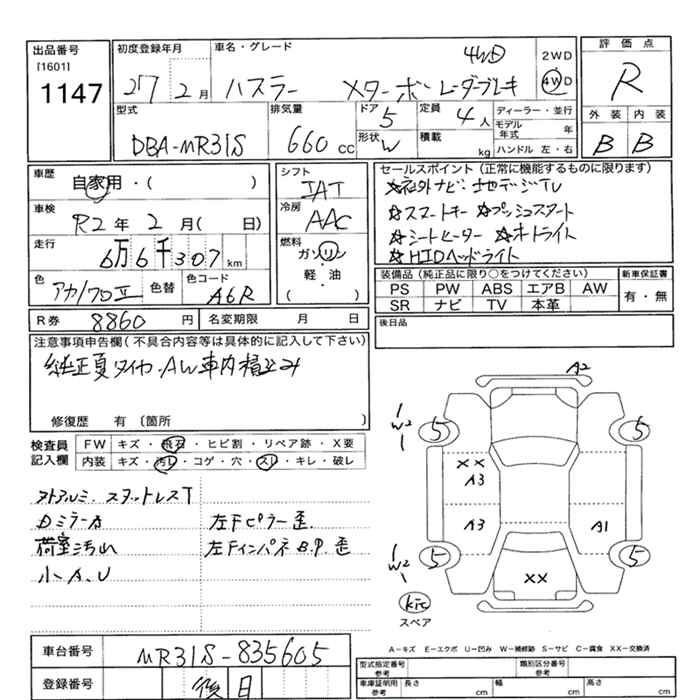 出品番号
[1601]
1147
初度登録年月
27 2月
車名・グレード
4WD
ハスラー Xターボ レーダーブレーキ
2WD
4WD
評価点
R
外装 内装
B B
型式
DBA-MR31S
排気量
660 cc
ドア
5
形状
W
定員
4人
積載
kg
ディーラー・並行
モデル年式 年
ハンドル 左・右
車歴
自家用・( )
車検
R2年 2月( 日)
走行
6万6千307 km
色
アカ/クロⅡ
色替
色コード
A6R
シフト
IAT
冷房
AAC
燃料
ガソリン
・
軽・油
( )
セールスポイント(正常に機能するものに限ります)
☆社外ナビ・地デジTV
☆スマートキー ☆プッシュスタート
☆シートヒーター ☆オートライト
☆HIDヘッドライト
装備品(純正品に限り○をつけてください)
PS PW ABS エアB AW
SR ナビ TV 本革
新車保証書
有・無
R券 8860 円
名変期限 月 日
後日品
注意事項申告欄(不具合内容等は具体的に記入して下さい)
純正夏タイヤ・AW車内積込み
修復歴 有 〔箇所 〕
検査員
記入欄
FW キズ・飛石・ヒビ割・リペア跡・X要
内装 キズ・汚レ・コゲ・穴・スレ・キレ・破レ
スタッドレスT
Dミラーカ
左FCピラー歪
荷室汚れ
左Fインパネ B.P.歪
小A.U
A2
W2
5
5
XX
A3
A3
A1
W2
5
5
XX
kic
スペア
A-キズ E-エクボ U-凹み W-補修跡 S-サビ C-腐食 XX-交換済
車台番号
MR31S-835605
登録番号
後日
型式指定番号
参考
類別区分番号
参考
車庫証明用
参考
長さ cm
幅 cm
高さ cm